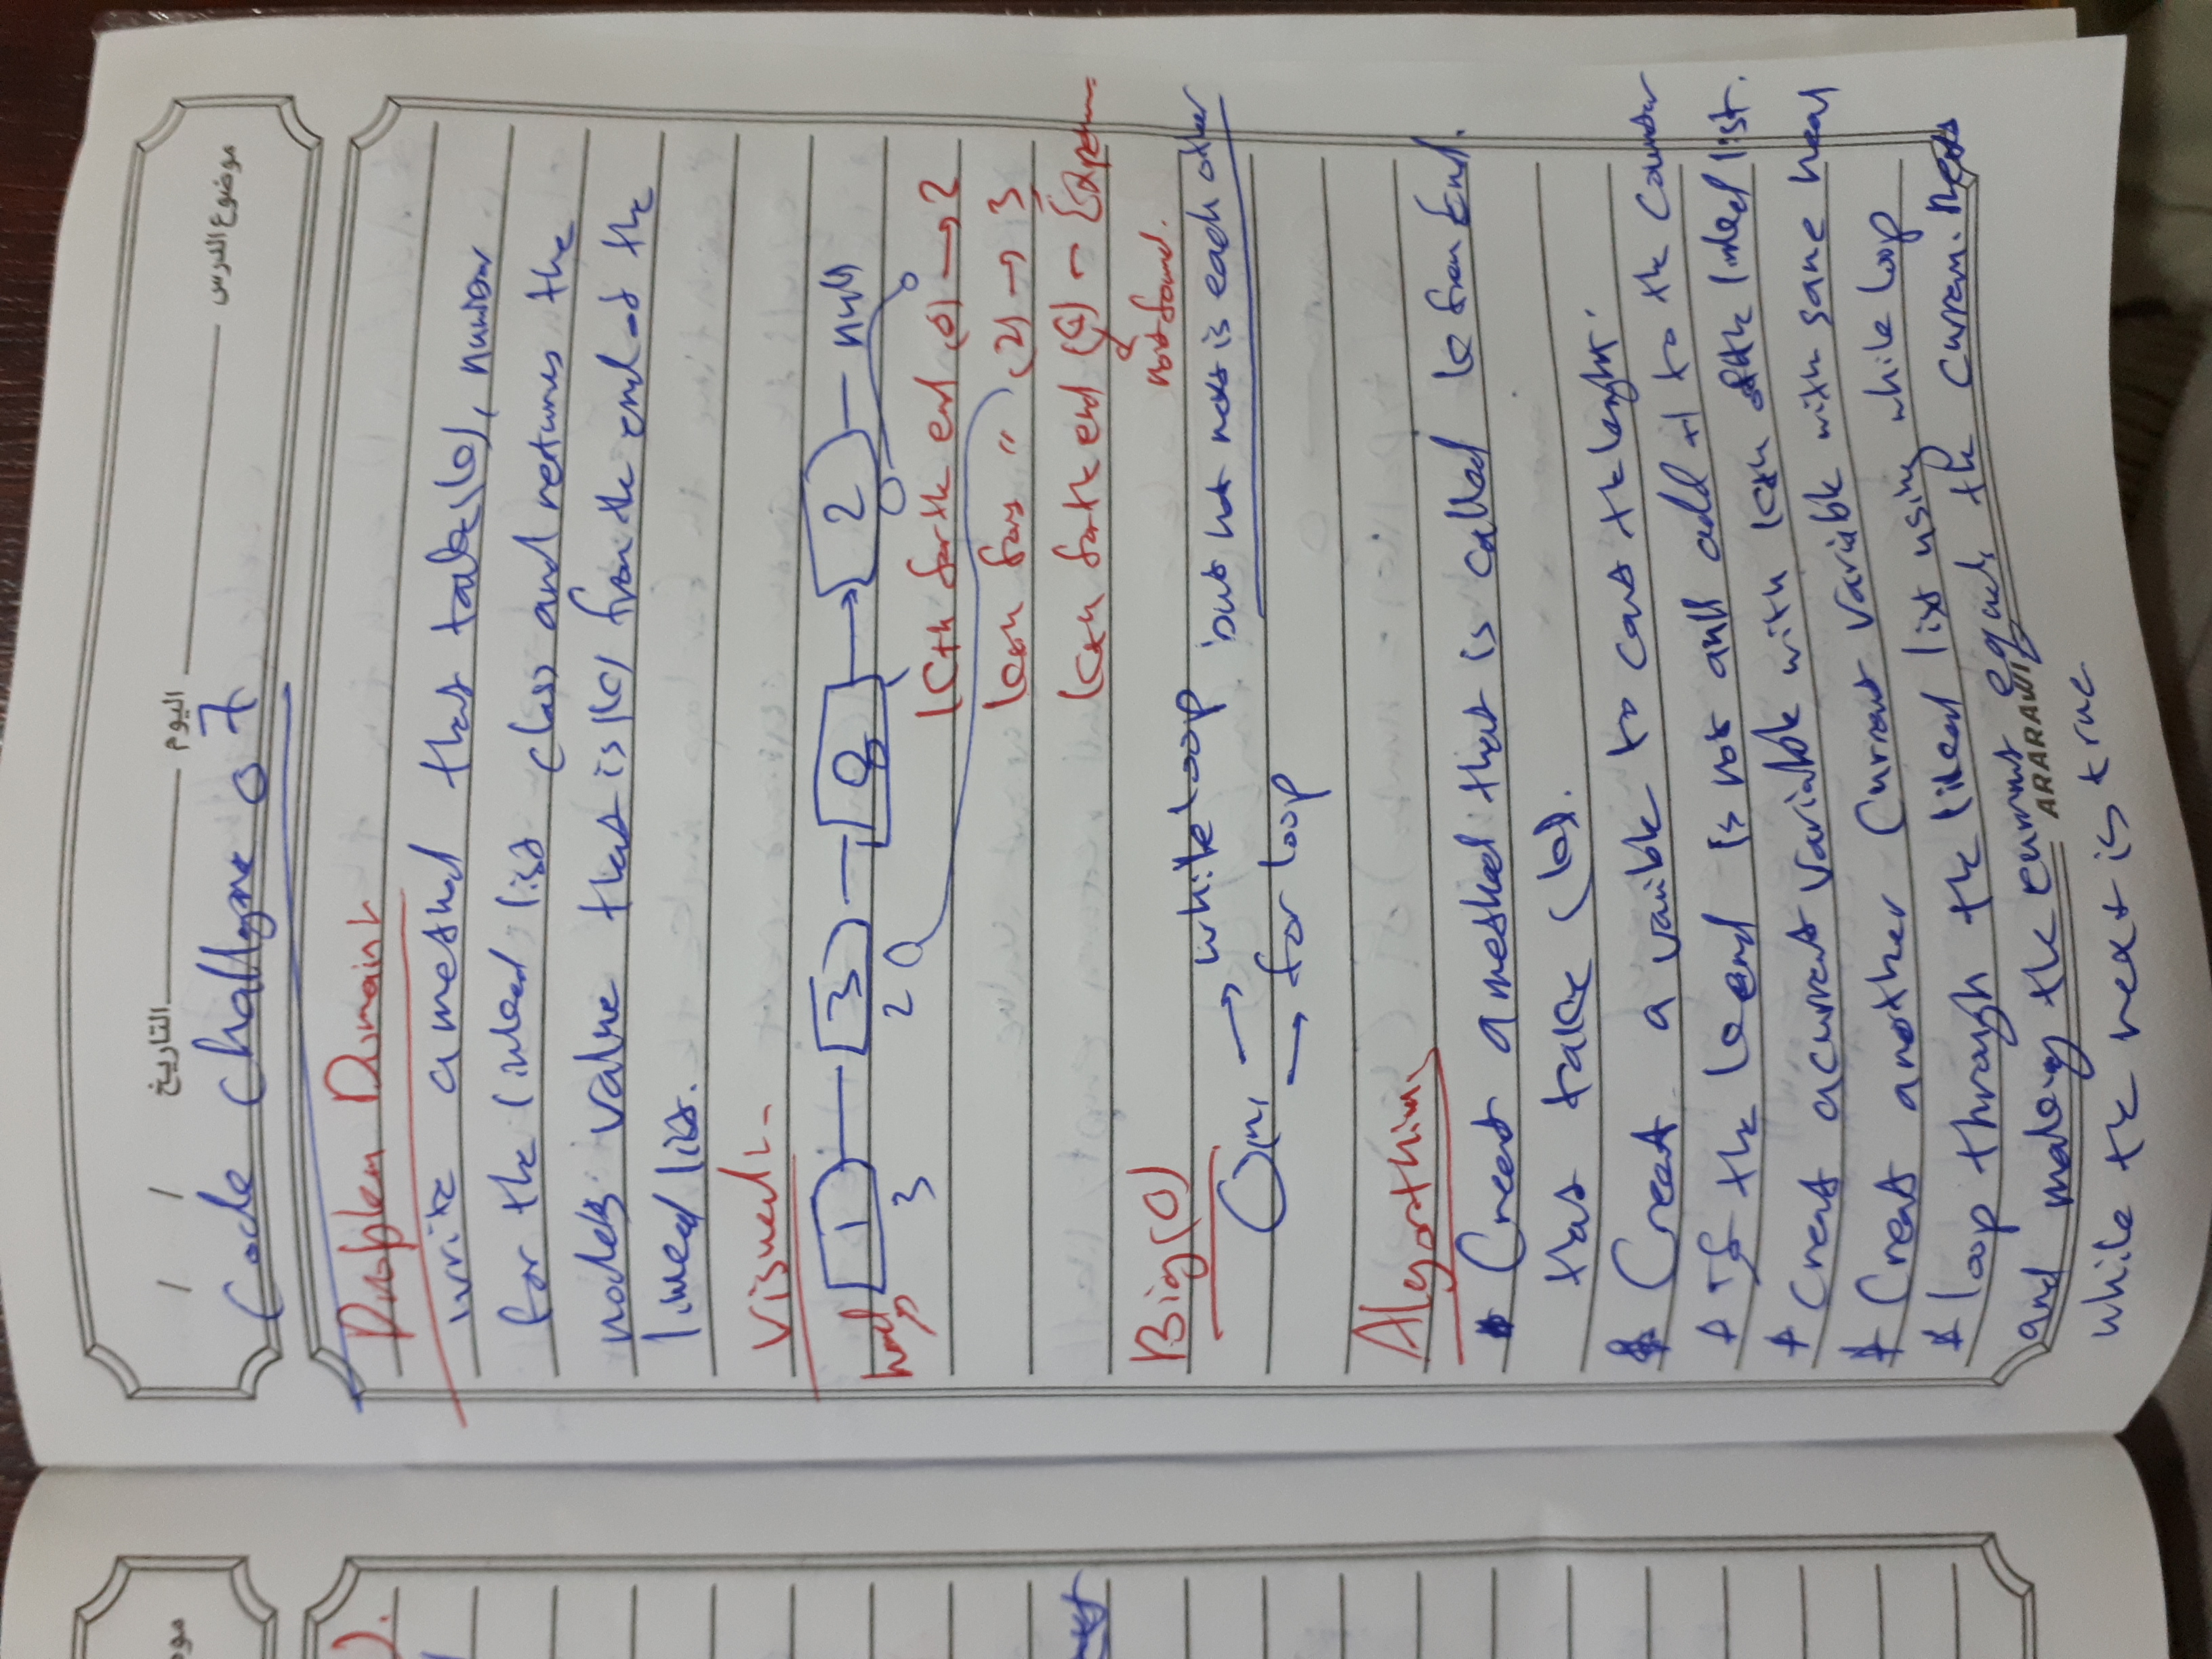 التاريخ / /
اليوم
موضوع الدرس
Code Challgne 07
Problem Domain:-
write a method that take (k), number
for the linked list class and returnes the
node's value that is (k) from the end of the
linked list.
Visual:-
head 1 3 8 2 null
3 2 0
kth for the end (0) → 2
kth for " (2) → 3
kth for the end (6) -
not found.
Big(O)
O(n) → while loop but not nest is each other
→ for loop
Algorthim:
* Creat a method that is called k from End.
that take (k).
* Creat a varible to count the lenght.
* If the head is not null add +1 to the Counter
* Creat a current Variable with kth of the linked list.
* Creat another Current Variable with same head
* loop through the linked list using while loop
and making the current equals the curren.next
while the next is true
ARARAWI